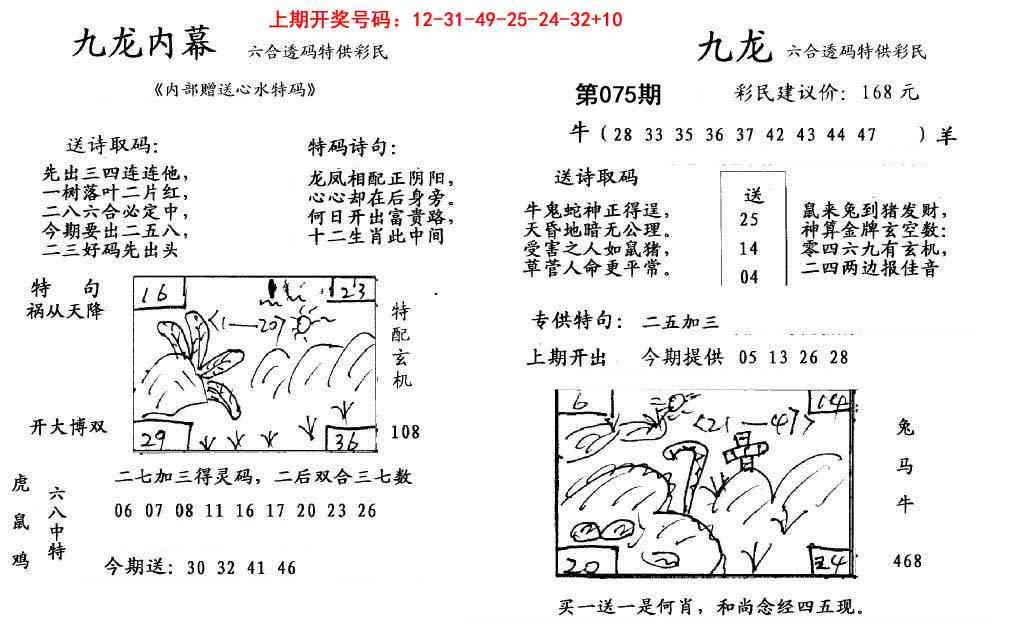 上期开奖号码：12-31-49-25-24-32+10
九龙内幕 六合透码特供彩民
《内部赠送心水特码》
送诗取码：
先出三四连连他，
一树落叶二片红，
二八六合必定中，
今期要出二五八，
二三好码先出头
特码诗句：
龙凤相配正阴阳，
心心却在后身旁。
何日开出富贵路，
十二生肖此中间
特 句
祸从天降
开大博双
16
23
〈1—20〉
29
36
特配玄机
108
二七加三得灵码，二后双合三七数
虎鼠鸡
六八中特
06 07 08 11 16 17 20 23 26
今期送：30 32 41 46
九龙 六合透码特供彩民
第075期 彩民建议价：168元
牛（28 33 35 36 37 42 43 44 47 ）羊
送诗取码
牛鬼蛇神正得逞，
天昏地暗无公理。
受害之人如鼠猪，
草菅人命更平常。
送
25
14
04
鼠来兔到猪发财，
神算金牌玄空数：
零四六九有玄机，
二四两边报佳音
专供特句：二五加三
上期开出 今期提供 05 13 26 28
6
14
〈21—47〉
20
24
兔
马
牛
468
买一送一是何肖，和尚念经四五现。